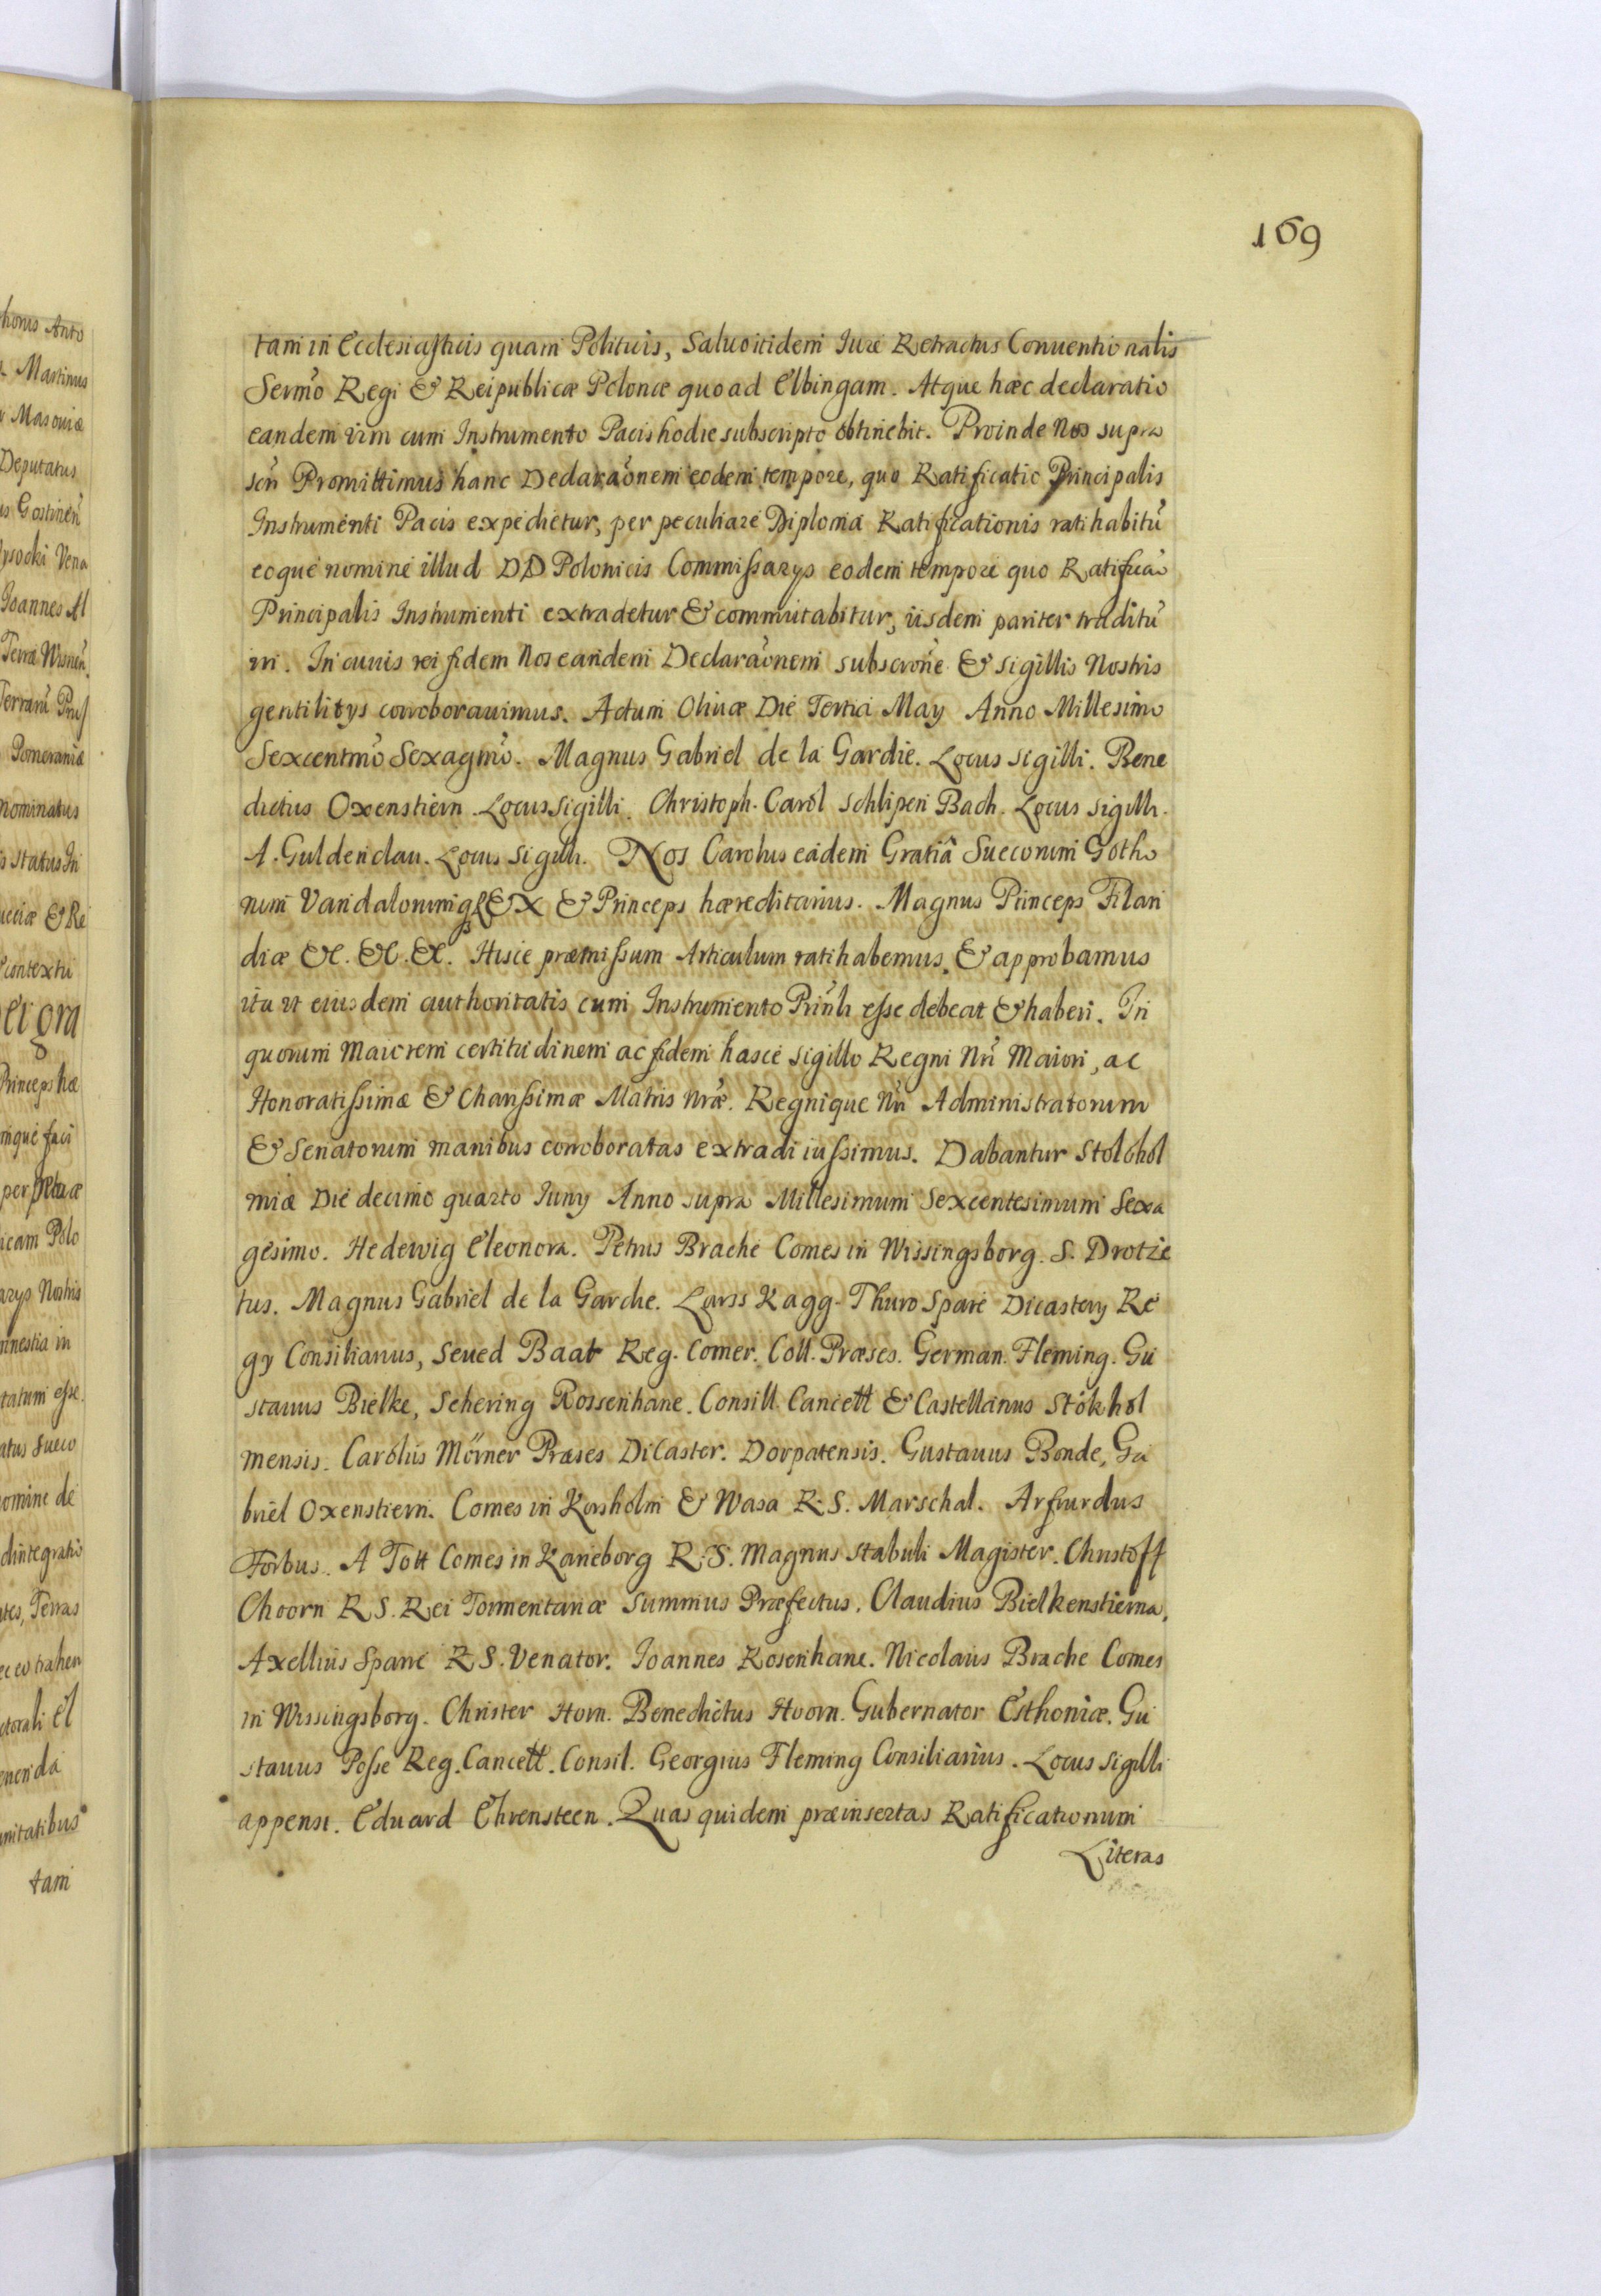 169
tam in Ecclesiasticis quam Politicis, Salvo itidem Iure Retractus Conventionalis
Sermo Regi & Reipublicæ Polonæ quo ad Elbingam. Atque hæc declaratio
eandem vim cum Instrumento Pacis hodie subscripto obtinebit. Proinde Nos supra
scri Promittimus hanc Declaraonem eodem tempore, quo Ratificatio Principalis
Instrumenti Pacis expedietur, per peculiare Diploma Ratificationis ratihabitũ
eoque nomine illud DD Polonicis Commissarys eodem tempore quo Ratificao
Principalis Instrumenti extradetur & commutabitur, iisdem pariter traditũ
iri. In cuius rei fidem Nos eandem Declaraonem subscrone & sigillis Nostris
gentilitys corroborauimus. Actum Olivæ Die Tertia May Anno Millesimo
Sexcentmo Sexagmo. Magnus Gabriel de la Gardie. Locus sigilli. Bene
dictus Oxenstiern. Locus sigilli. Christoph. Carol Schlipen Bach. Locus sigilli.
A. Guldenclau. Locus Sigilli. Nos Carolus eadem Gratiâ Suecorum Gotho
rum Vandalorumq REX & Princeps hæreditarius. Magnus Princeps Filan
diæ &c. &c. &c. Hisce præmissum Articulum ratihabemus, & approbamus
ita vt eiusdem authoritatis cum Instrumento Prinli esse debeat & haberi. In
quorum Maiorem certitudinem ac fidem hasce sigillo Regni Nri Maiori, ac
Honoratissimæ & Charissimæ Matris Nræ. Regnique Nri Administratorum
& Senatorum manibus corroboratas extradi iussimus. Dabantur Stolohol
miæ Die decimo quarto Iuny Anno supra Millesimum Sexcentesimum Sexa
gesimo. Hedewig Eleonora. Petrus Brache Comes in Wissingsborg. S. Drotze
tus. Magnus Gabriel de la Gardie. Larss Kagg. Thuro Spare Dicastery Re
gy Consiliarius, Seued Baat Reg. Comer. Coll. Præses. German. Fleming. Gu
stauus Bielke, Schering Rossenhane. Consill. Cancell & Castellanus Stokhol
mensis. Carolus Mörner Præses Dicaster. Dorpatensis. Gustauus Bonde, Ga
briel Oxenstiern. Comes in Korsholm & Wasa R. S. Marschal. Arfuurdus
Forbus. A Tott Comes in Kaneborg R. S. Magnus stabuli Magister. Christoff
Choorn R S. Rei Tormentariæ Summus Præfectus. Claudius Bielkenstierna,
Axellius Sparre R S. Venator. Ioannes Rosenhane. Nicolaus Brache Comes
in Wissingsborg. Christer Horn. Benedictus Hoorn. Gubernator Esthoniæ. Gu
stauus Posse Reg. Cancell. Consil. Georgius Fleming Consiliarius. Locus sigilli
appensi. Eduard Ehrensteen. Quas quidem præinsertas Ratificationum
Literas